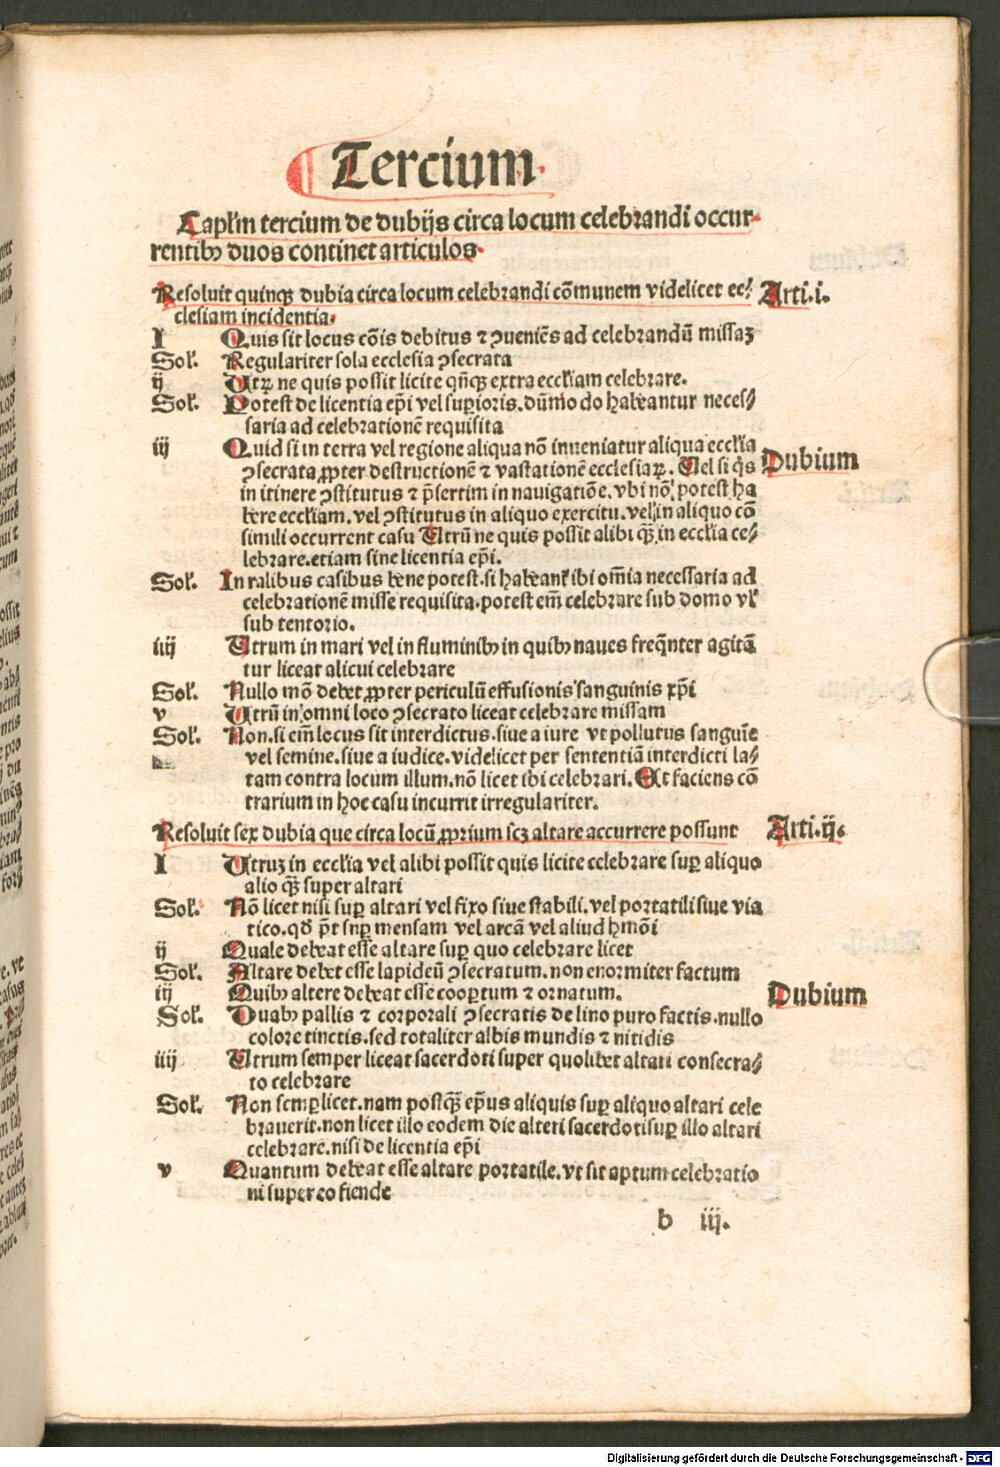 Tercium.
Caplʼm tercium de dubijs circa locum celebrandi occur-
rentibꝰ duos continet articulos.
Resoluit quinqꝫ dubia circa locum celebrandi cōmunem videlicet ec/ Arti.i.
clesiam incidentia.
I Quis sit locus cōis debitus ⁊ ꝯueniēs ad celebrandū missaꝫ
Sol'. Regulariter sola ecclesia ꝯsecrata
ij Utꝝ ne quis possit licite qn̄qꝫ extra eccl'iam celebrare.
Sol'. Potest de licentia ep̄i vel sup̱ioris.dūmodo habeantur neces/
saria ad celebrationē requisita
iij Quid si in terra vel regione aliqua nō inueniatur aliqua eccl'ia Dubium
ꝯsecrata ꝓpter destructionē ⁊ vastationē ecclesiaꝝ. Uel si q̇s
in itinere ꝯstitutus ⁊ p̄sertim in nauigatiōe.vbi nō potest ha
bere eccl'iam.vel ꝯstitutus in aliquo exercitu.vel in aliquo cō
simili occurrent casu Utrū ne quis possit alibi qꝫ̄ in eccl'ia ce/
lebrare.etiam sine licentia ep̄i.
Sol'. In ralibus casibus bene potest.si habeant' ibi om̄ia necessaria ad
celebrationē misse requisita.potest em̄ celebrare sub domo vl'
sub tentorio.
iiij Utrum in mari vel in fluminibꝰ in quibꝰ naues freq̄nter agitā
tur liceat alicui celebrare
Sol'. Nullo mō debet ꝓpter periculū effusionis sanguinis xp̄i
v Utrū in omni loco ꝯsecrato liceat celebrare missam
Sol'. Non.si em̄ locus sit interdictus.siue a iure vt pollutus sanguīe
vel semine.siue a iudice.videlicet per sententiā interdicti la/
tam contra locum illum.nō licet ibi celebrari. Et faciens cō
trarium in hoc casu incurrit irregulariter.
Resoluit sex dubia que circa locū ꝓprium scꝫ altare accurrere possunt Arti.ij.
I Utruꝫ in eccl'ia vel alibi possit quis licite celebrare sup̱ aliquo
alio qꝫ̄ super altari
Sol'. Nō licet nisi sup̱ altari vel fixo siue stabili.vel portatili siue via
tico.qd̄ p̄t snp̱ mensam vel arcā vel aliud hmōi
ij Quale debeat esse altare sup̱ quo celebrare licet
Sol'. Altare debet esse lapideū ꝯsecratum.non enormiter factum
iij Quibꝰ altere debeat esse coop̱tum ⁊ ornatum. Dubium
Sol'. Duabꝰ pallis ⁊ corporali ꝯsecratis de lino puro factis.nullo
colore tinctis.sed totaliter albis mundis ⁊ nitidis
iiij Utrum semper liceat sacerdoti super quolibet altari consecra/
to celebrare
Sol'. Non semp̱ licet.nam postqꝫ̄ ep̄us aliquis sup̱ aliquo altari cele
brauerit.non licet illo eodem die alteri sacerdoti sup̱ illo altari
celebrare.nisi de licentia ep̄i
v Quantum debeat esse altare portatile.vt sit aptum celebratio
ni super eo fiende
b iij.
Digitalisierung gefördert durch die Deutsche Forschungsgemeinschaft - DFG